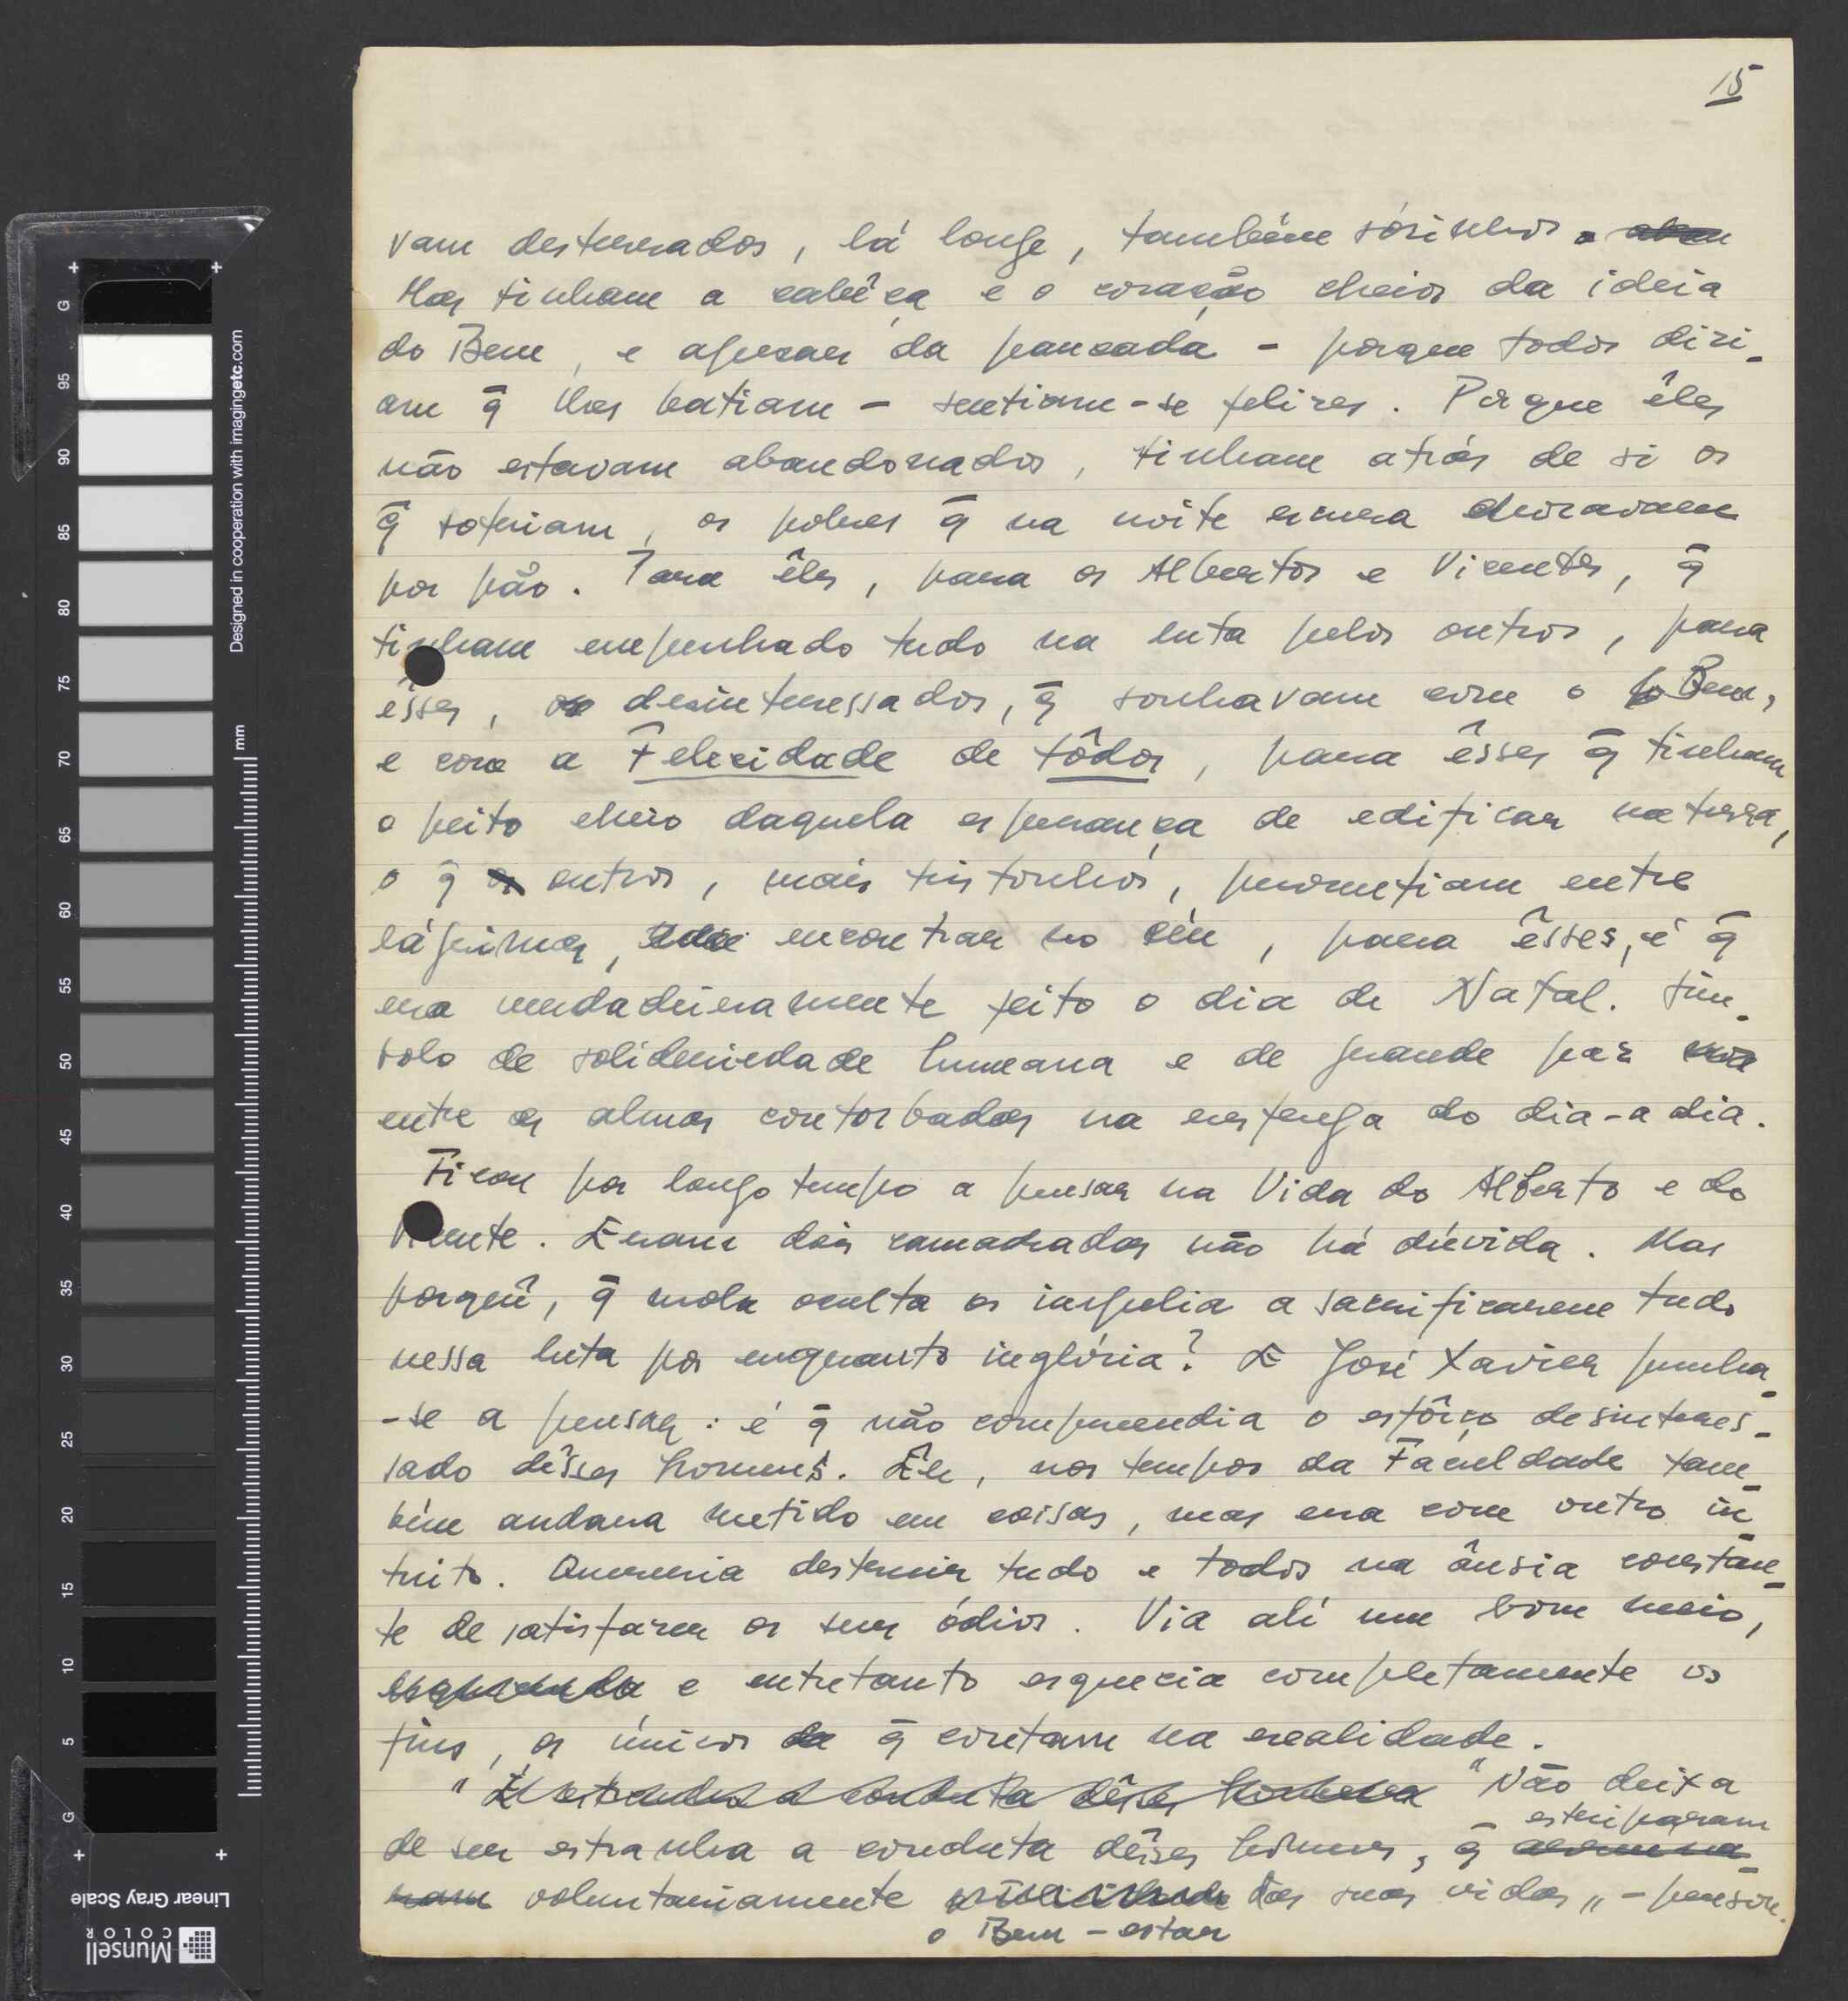 15
vam desterrados, lá longe, também sòzinhos.
Mas tinham a cabêça e o coração cheios da ideia
do Bem, e apesar da pancada - porque todos dizi-
am q̄ lhes batiam - sentiam-se felizes. Porque êles
não estavam abandonados, tinham atrás de si os
q̄ sofriam, os pobres q̄ na noite escura choravam
por pão. Para êles, para os Albertos e Vicentes, q̄
tinham empenhado tudo na luta pelos outros, para
êsses, os desinteressados, q̄ sonhavam com o Bem,
e com a Felicidade de tôdos, para êsses q̄ tinham
o peito cheio daquela esperança de edificar na terra,
o q̄ os outros, mais tristonhos, prometiam entre
lágrimas, encontrar no céu, para êsses, é q̄
era verdadeiramente feito o dia de Natal. Sím-
bolo de solideriedade humana e de grande paz
entre as almas contorbadas na refrega do dia-a dia.
Ficou por longo tempo a pensar na Vida do Alberto e do
Vicente. Eram dois camaradas não há dúvida. Mas
porquê, q̄ mola oculta os impelia a sacrificarem tudo
nessa luta por enquanto inglória? E José Xavier punha-
-se a pensar: é q̄ não compreendia o esfôrço desinteres-
sado dêsses homens. Êle, nos tempos da Faculdade tam-
bém andara metido em coisas, mas era com outro in-
tuito. Quereria destruir tudo e todos na ânsia constan-
te de satisfazer os seus ódios. Via alí um bom meio,
e entretanto esquecia completamente os
fins, os únicos q̄ contam na realidade.
" É estranha a conduta dêsses homens "Não deixa
estriparam
de ser estranha a conduta dêsses homens, q̄
ram voluntariamente das suas vidas" - pensou.
o Bem - estar
G
95
90
85
80
75
70
65
60
55
50
45
40
35
30
25
20
15
10
5
G
mm
Designed in cooperation with imagingetc.com
Linear Gray Scale
Munsell
COLOR